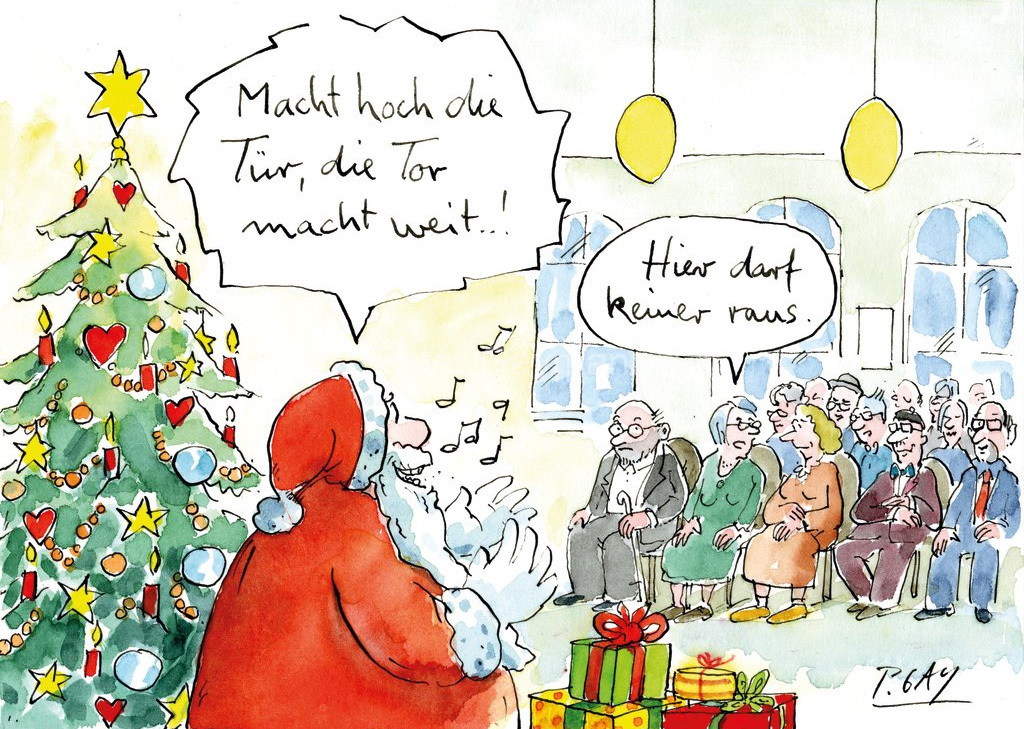 Macht hoch die
Tür, die Tor
macht weit..!
Hier darf
keiner raus.
P. GAY